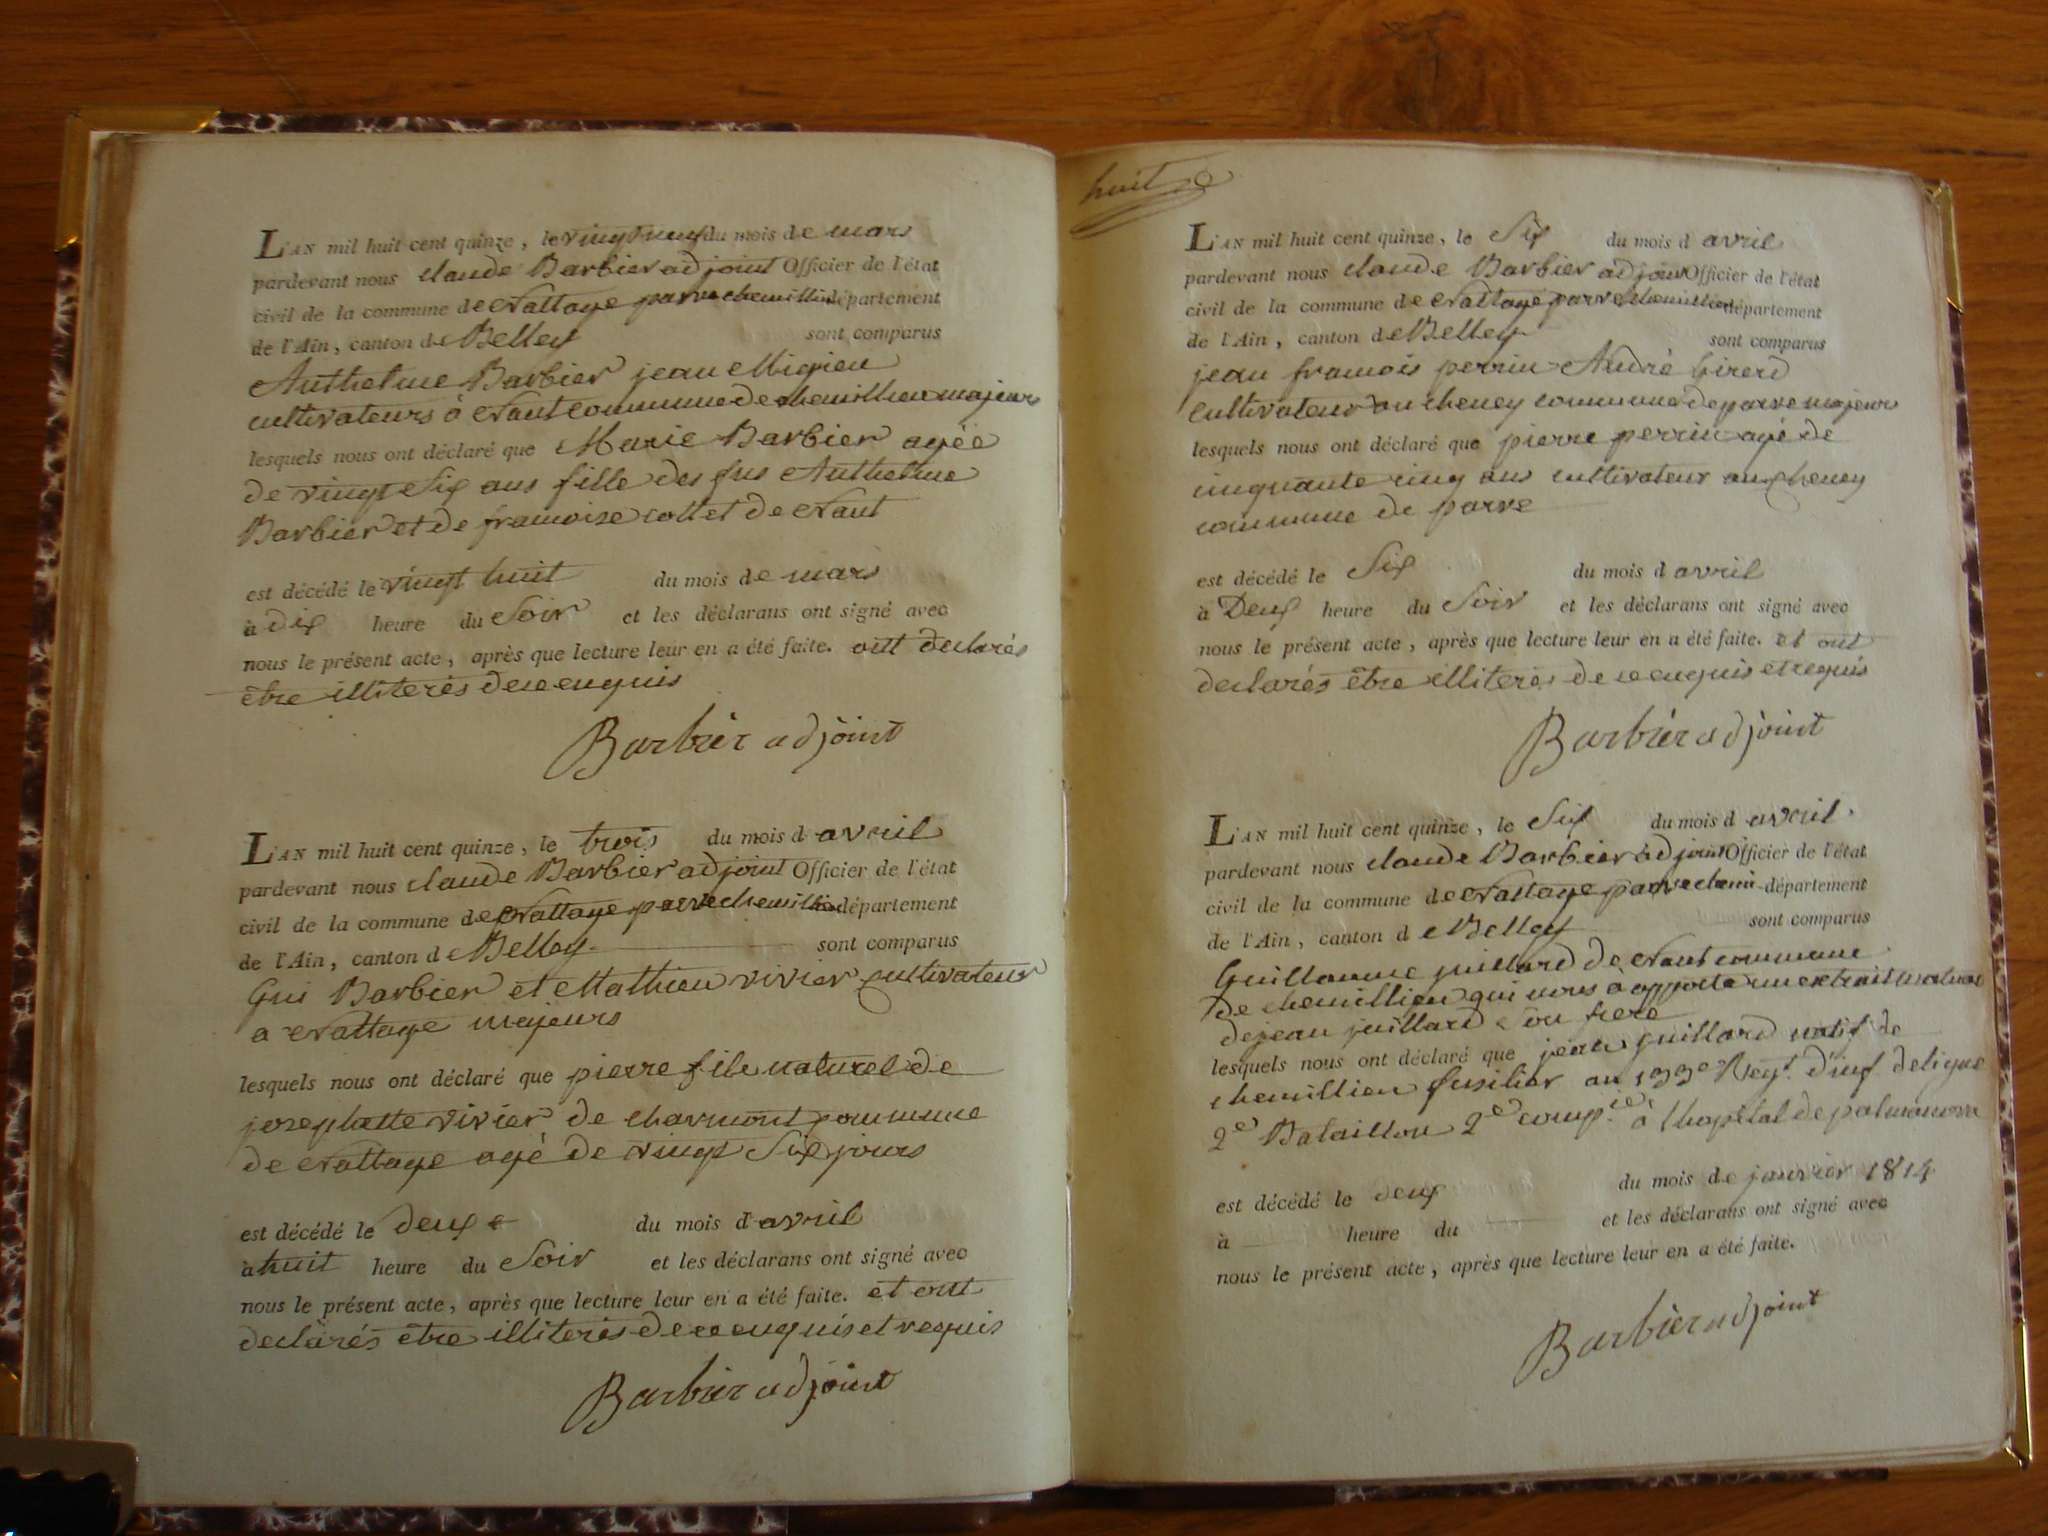 L'AN mil huit cent quinze, le vingt neuf du mois de mars
pardevant nous claude Barbier adjoint Officier de l'état
civil de la commune de Nattage parve chemillieu département
de l'Ain, canton de Belley sont comparus
Anthelme Barbier jean Migieu
cultivateurs à Nant commune de chemillieu majeurs
lesquels nous ont déclaré que Marie Barbier agée
de vingt Six ans fille des fus Anthelme
Barbier et de francoise collet de Nant
est décédé le vingt huit du mois de mars
à dix heure du Soir et les déclarans ont signé avec
nous le présent acte, après que lecture leur en a été faite. ont declarés
être illiterés de ce enquis
Barbier adjoint
L'AN mil huit cent quinze, le trois du mois d avril
pardevant nous claude Barbier adjoint Officier de l'état
civil de la commune de Nattage parve chemillieu département
de l'Ain, canton de Belley sont comparus
Gui Barbier et Mathieu vivier cultivateur
a Nattage majeurs
lesquels nous ont déclaré que pierre fils naturel de
josephatte vivier de charmont commune
de Nattage agé de vingt Six jours
est décédé le deux du mois d'avril
à huit heure du Soir et les déclarans ont signé avec
nous le présent acte, après que lecture leur en a été faite. et ont
declarés être illiterés de ce enquis et requis
Barbier adjoint
huit
L'AN mil huit cent quinze, le Six du mois d avril
pardevant nous claude Barbier adjoint Officier de l'état
civil de la commune de Nattage parve chemillieu département
de l'Ain, canton de Belley sont comparus
jean francois perrin André Girerd
cultivateur au cheney commune de parve majeurs
lesquels nous ont déclaré que pierre perrin agé de
cinquante cinq ans cultivateur au cheney
commune de parve
est décédé le Six du mois d avril
à Deux heure du Soir et les déclarans ont signé avec
nous le présent acte, après que lecture leur en a été faite. et ont
declarés être illiterés de ce enquis et requis
Barbier adjoint
L'AN mil huit cent quinze, le Six du mois d avril.
pardevant nous claude Barbier adjoint Officier de l'état
civil de la commune de Nattage parve chemi département
de l'Ain, canton de Belley sont comparus
Guillaume juillard de Nant commune
de chemillieu qui nous a apporté un extrait
de jean juillard Son frere
lesquels nous ont déclaré que jean juillard natif de
chemillieu fusilier au 133e Regt. d'inf. de ligne
2e Bataillon 2e compie. à l'hopital de palmanova
est décédé le deux du mois de janvier 1814
à heure du et les déclarans ont signé avec
nous le présent acte, après que lecture leur en a été faite.
Barbier adjoint